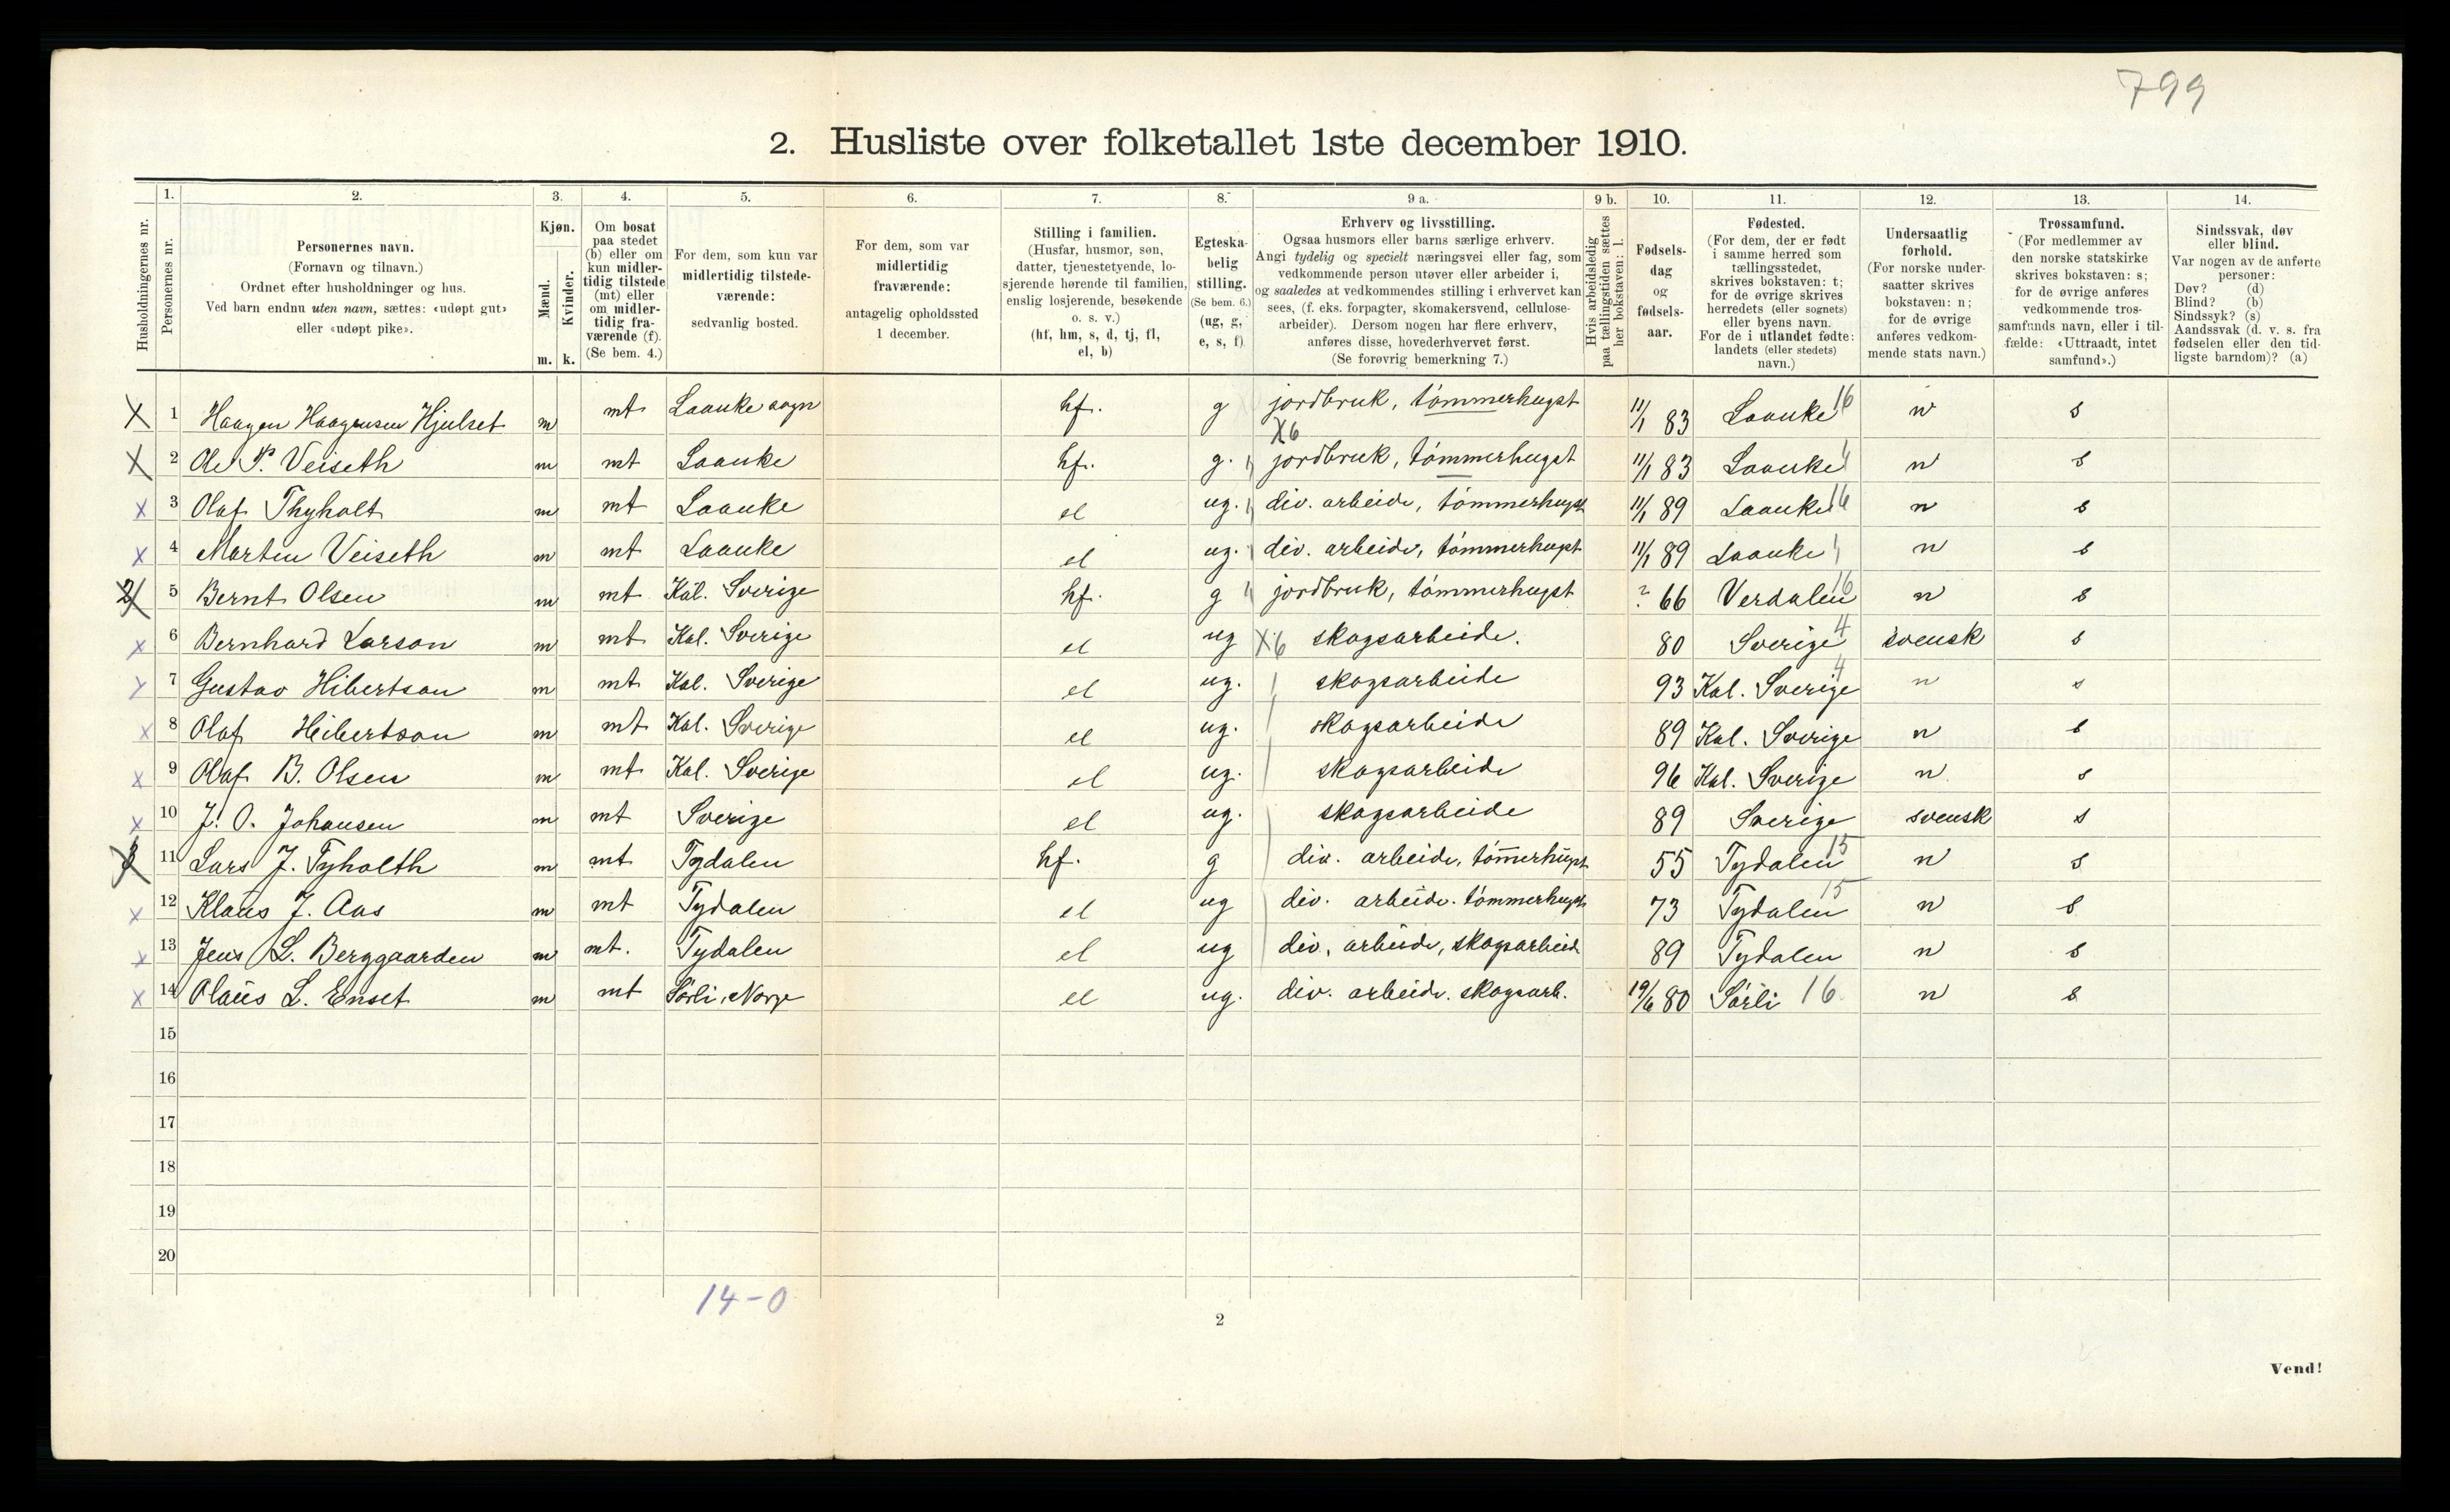 799
2. Husliste over folketallet 1ste december 1910.
Husholdningernes nr.
1.
Personernes nr.
2.
Personernes navn.
(Fornavn og tilnavn.)
Ordnet efter husholdninger og hus.
Ved barn endnu uten navn, sættes: «udøpt gut»
eller «udøpt pike».
3.
Kjøn.
Mænd.
Kvinder.
m. k.
4.
Om bosat
paa stedet
(b) eller om
kun midler-
tidig tilstede
(mt) eller
om midler-
tidig fra-
værende (f).
(Se bem. 4.)
5.
For dem, som kun var
midlertidig tilstede-
værende:
sedvanlig bosted.
6.
For dem, som var
midlertidig
fraværende:
antagelig opholdssted
1 december.
7.
Stilling i familien.
(Husfar, husmor, søn,
datter, tjenestetyende, lo-
sjerende hørende til familien,
enslig losjerende, besøkende
o. s. v.)
(hf, hm, s, d, tj, fl,
el, b)
8.
Egteska-
belig
stilling.
(Se bem. 6.)
(ug, g,
e, s, f)
9 a.
Erhverv og livsstilling.
Ogsaa husmors eller barns særlige erhverv.
Angi tydelig og specielt næringsvei eller fag, som
vedkommende person utøver eller arbeider i,
og saaledes at vedkommendes stilling i erhvervet kan
sees, (f. eks. forpagter, skomakersvend, cellulose-
arbeider). Dersom nogen har flere erhverv,
anføres disse, hovederhvervet først.
(Se forøvrig bemerkning 7.)
9 b.
Hvis arbeidsledig
paa tællingstiden sættes
her bokstaven: l.
10.
Fødsels-
dag
og
fødsels-
aar.
11.
Fødested.
(For dem, der er født
i samme herred som
tællingsstedet,
skrives bokstaven: t;
for de øvrige skrives
herredets (eller sognets)
eller byens navn.
For de i utlandet fødte:
landets (eller stedets)
navn.)
12.
Undersaatlig
forhold.
(For norske under-
saatter skrives
bokstaven: n;
for de øvrige
anføres vedkom-
mende stats navn.)
13.
Trossamfund.
(For medlemmer av
den norske statskirke
skrives bokstaven: s;
for de øvrige anføres
vedkommende tros-
samfunds navn, eller i til-
fælde: «Uttraadt, intet
samfund».)
14.
Sindssvak, døv
eller blind.
Var nogen av de anførte
personer:
Døv? (d)
Blind? (b)
Sindssyk? (s)
Aandssvak (d. v. s. fra
fødselen eller den tid-
ligste barndom)? (a)
X 1 Haagen Haagensen Hjulset m mt Laanke sogn hf. g jordbruk, tömmerhugst 11/1 83 Laanke 16 n s
X6
X 2 Ole P. Veiseth m mt Laanke hf. g. jordbruk, tömmerhugst 11/1 83 Laanke n s
x 3 Olaf Thyholt m mt Laanke el ug. div. arbeide, tömmerhugst 11/1 89 Laanke 16 n s
x 4 Marten Veiseth m mt Laanke el ug. div. arbeide, tömmerhugst 11/1 89 Laanke n s
2 5 Bernt Olsen m mt Kal. Sverige hf. g jordbruk, tömmerhugst ? 66 Verdalen 16 n s
x 6 Bernhard Larson m mt Kal. Sverige el ug X6 skogsarbeide. 80 Sverige 4 svensk s
x 7 Gustav Hibertson m mt Kal. Sverige el ug. skogsarbeide 93 Kal. Sverige 4 n s
x 8 Olaf Heibertson m mt Kal. Sverige el ug. skogsarbeide 89 Kal. Sverige n s
x 9 Olaf B. Olsen m mt Kal. Sverige el ug. skogsarbeide 96 Kal. Sverige n s
x 10 J. O. Johansen m mt Sverige el ug. skogsarbeide 89 Sverige svensk s
11 Lars J. Tyholth m mt Tydalen hf. g div. arbeide, tömerhugst 55 Tydalen 15 n s
x 12 Klaus J. Aas m mt Tydalen el ug div. arbeide. tömmerhugst 73 Tydalen 15 n s
x 13 Jens L. Berggaarden m mt. Tydalen el ug div. arbeide, skogsarbeide 89 Tydalen n s
x 14 Olaus L. Enset m mt Sörli, Norge el ug. div. arbeide. skogsarb. 19/6 80 Sörli 16 n s
15
16
17
18
19
20
14-0
2
Vend!